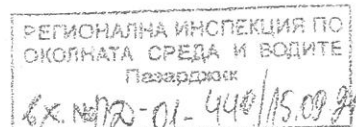 РЕГИОНАЛНА ИНСПЕКЦИЯ ПО
ОКОЛНАТА СРЕДА И ВОДИТЕ
Пазарджик
Вх. №ПД-01-440/15.09